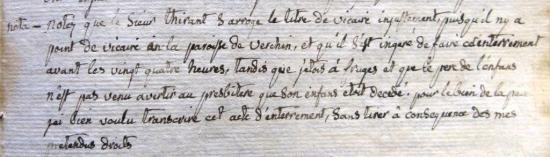 nota – notez que le Sieur thirant S'arroge le titre de vicaire injustement, puisqu'il ny a
point de vicaire en la paroisse de Verchin, et qu'il s'est ingeré de faire cet enterrement
avant les vingt quatre heures, tandis que j'etois à fruges et que le pere de l'enfans
n'est pas venu avertir au presbitere que son enfans étoit decedé. pour le bien de la paix
jai bien voulu transcrire cet acte d'enterrement, Sans tirer à consequence des mes
pretendus droits